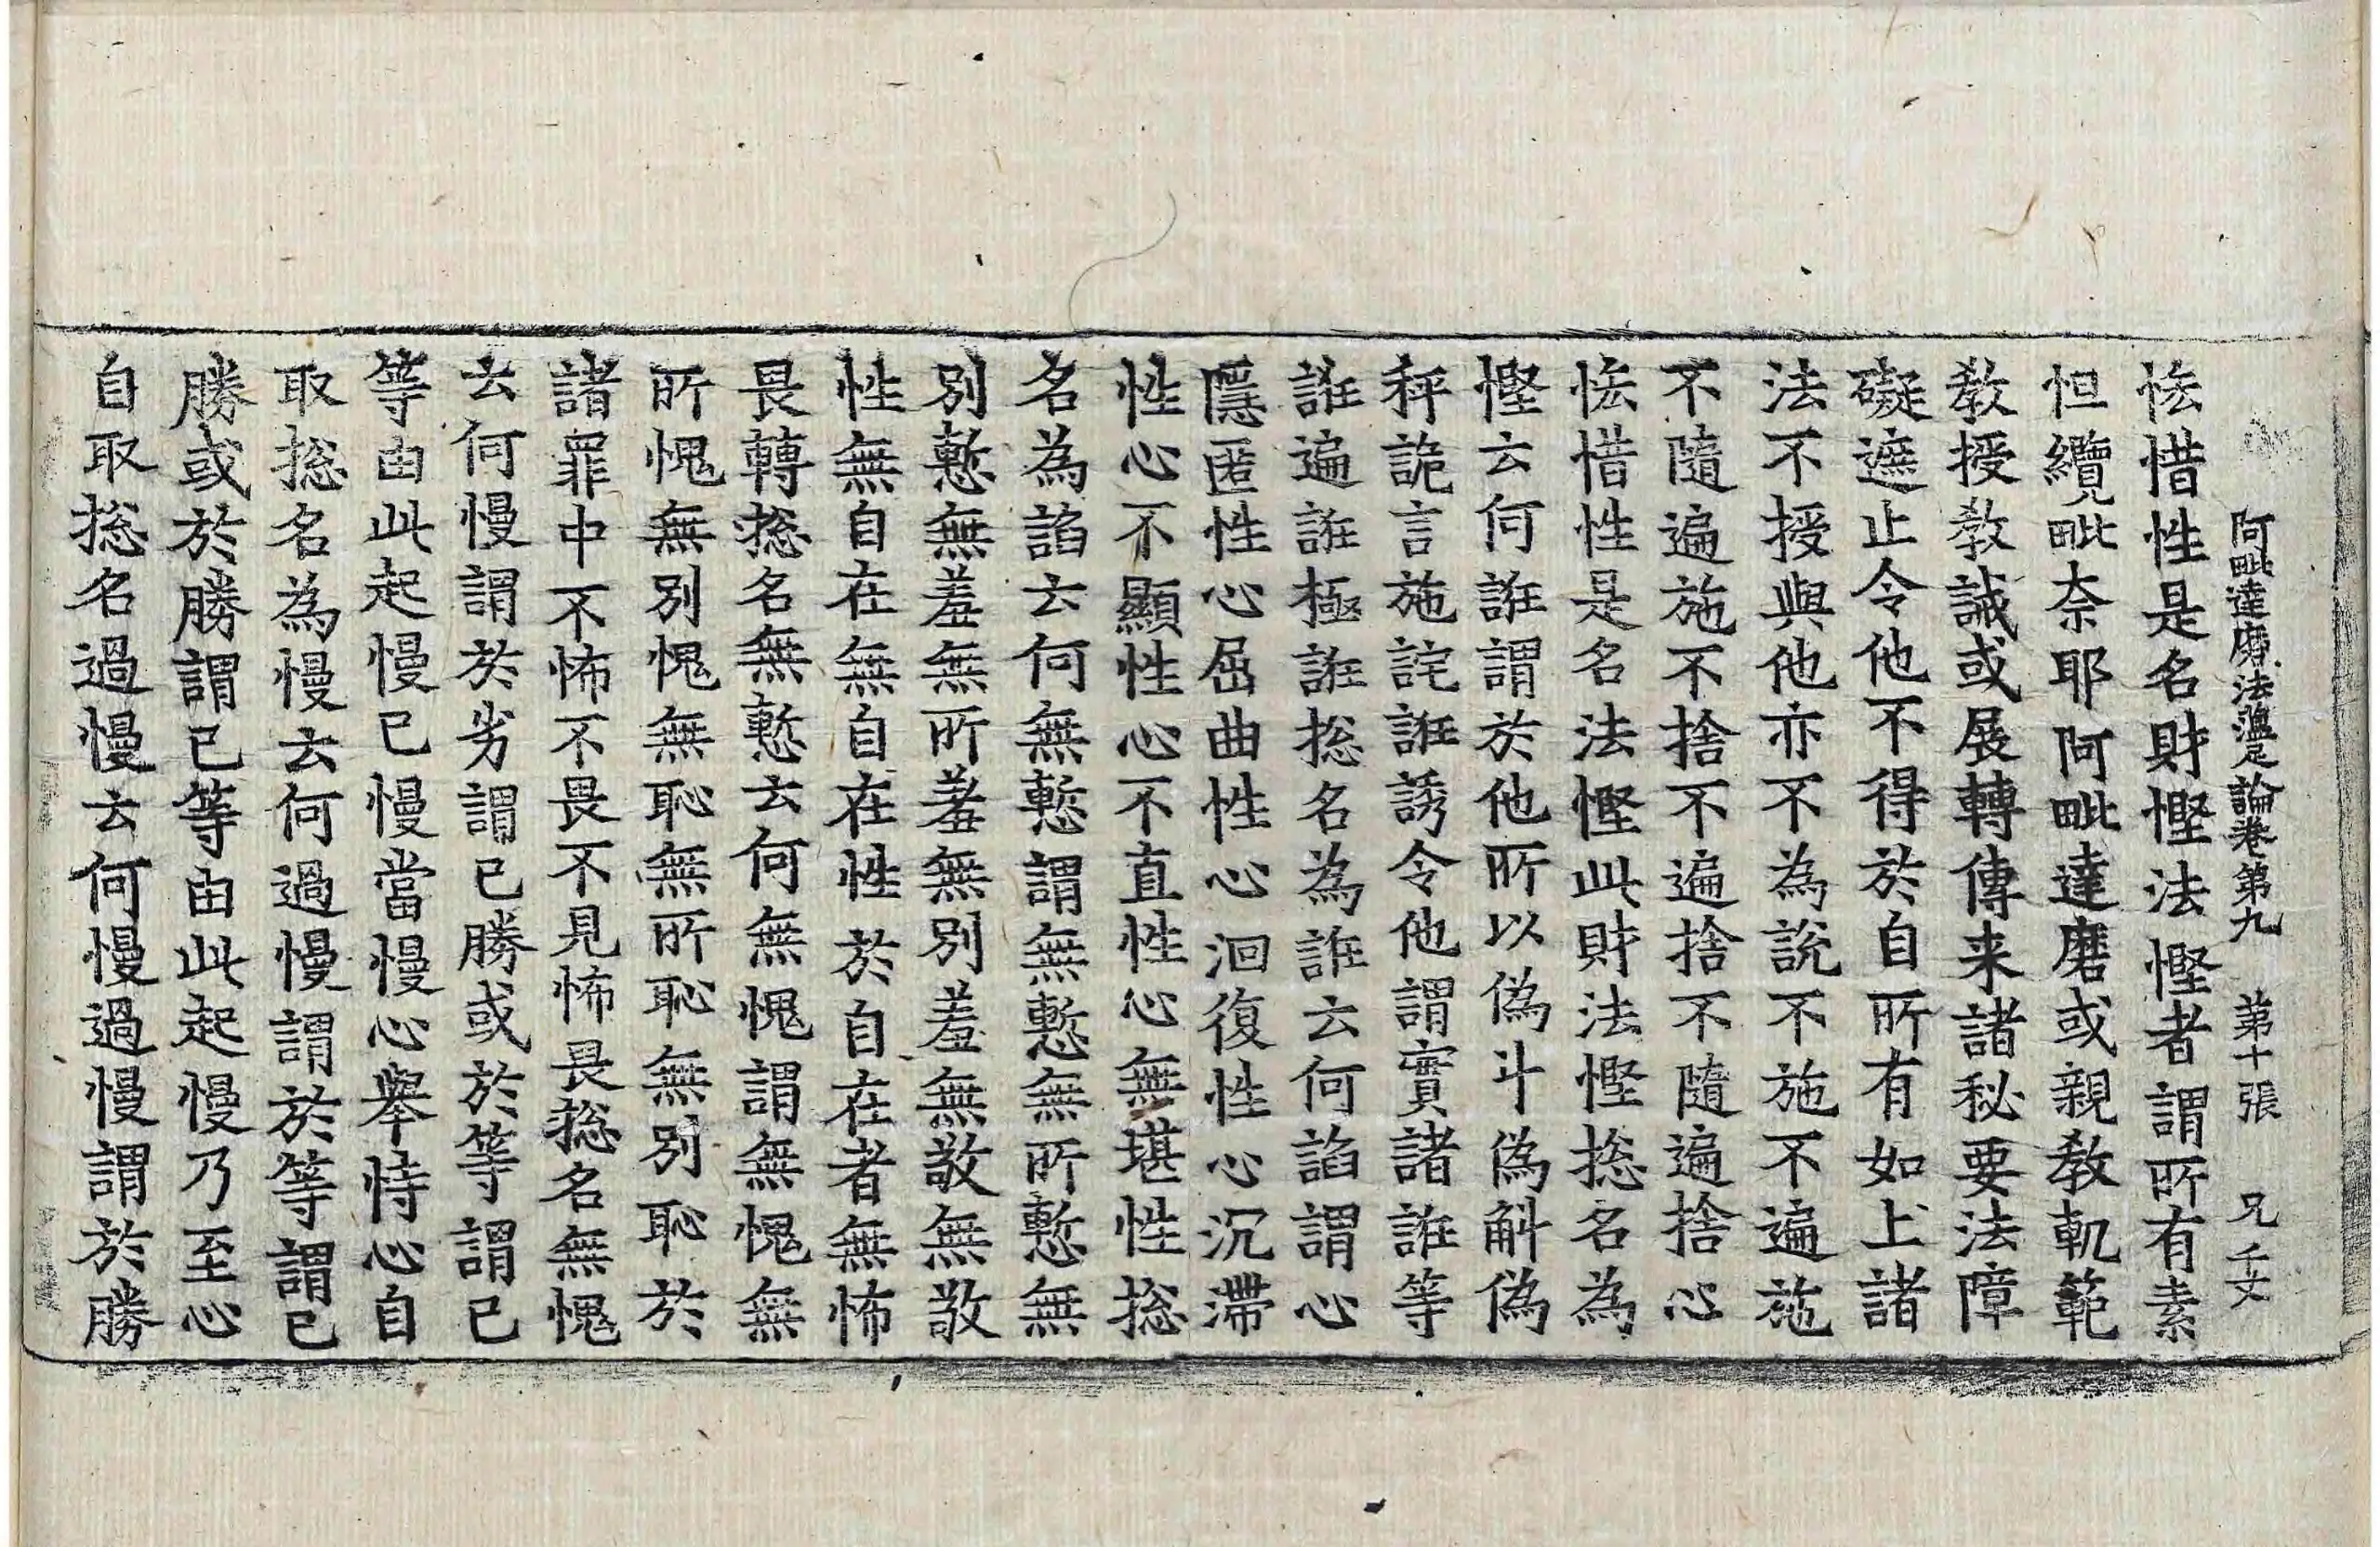 阿毗達磨法蘊足論卷第九　第十張　兄　千文
恡惜性是名財慳法慳者謂所有素
怛纜毗奈耶阿毗達磨或親教軌範
教授教誡或展轉傳来諸秘要法障
礙遮止令他不得於自所有如上諸
法不授與他亦不為說不施不遍施
不隨遍施不捨不遍捨不隨遍捨心
恡惜性是名法慳此財法慳捴名為
慳云何誑謂於他所以偽斗偽斛偽
秤詭言施詫誑誘令他謂實諸誑等
誑遍誑極誑捴名為誑云何諂謂心
隱匿性心屈曲性心洄復性心沉滯
性心不顯性心不直性心無堪性捴
名為諂云何無慙謂無慙無所慙無
別慙無羞無所羞無別羞無敬無敬
性無自在無自在性於自在者無怖
畏轉捴名無慙云何無愧謂無愧無
所愧無別愧無恥無所恥無別恥於
諸罪中不怖不畏不見怖畏捴名無愧
云何慢謂於劣謂已勝或於等謂已
等由此起慢已慢當慢心舉恃心自
取捴名為慢云何過慢謂於等謂已
勝或於勝謂已等由此起慢乃至心
自取捴名過慢云何慢過慢謂於勝